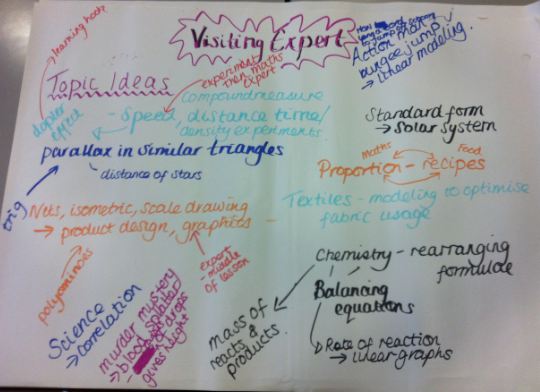 Visiting Expert
How long a cord
to jump off
Action man
bungee jump
→ linear modeling.
learning hook
Topic Ideas
experiment
then maths
expert
compound measure
- Speed, distance time/
density experiments
dopler
effect
parallax in similar triangles
distance of stars
trig
Standard form
→ Solar System
Maths
Food
Proportion - recipes
Textiles - modeling to optimise
fabric usage
Nets, isometric, scale drawing
→ product design, graphics
polyominoes
expert -
middle
of lesson
Science
→ correlation
murder mystery
→ blood splatter
- of drops
gives height
Chemistry - rearranging
formulae
Balancing
equations
mass of
reacts &
products.
Rate of reaction
→ linear graphs